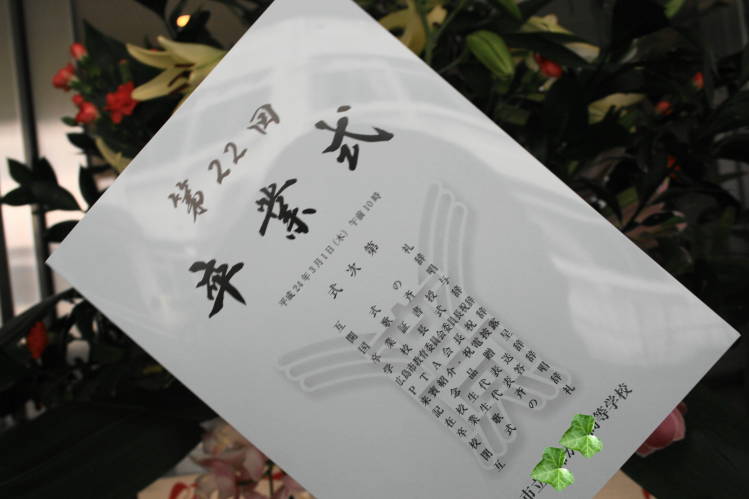 第22回
卒業式
平成24年3月1日(木) 午前10時
式次第
互礼
開式の辞
国歌斉唱
卒業証書授与
学校長式辞
広島市教育委員会委員長祝辞
PTA会長祝辞
来賓紹介・祝電披露
記念品贈呈
在校生代表送辞
卒業生代表答辞
校歌斉唱
閉式の辞
互礼
市立 高等学校